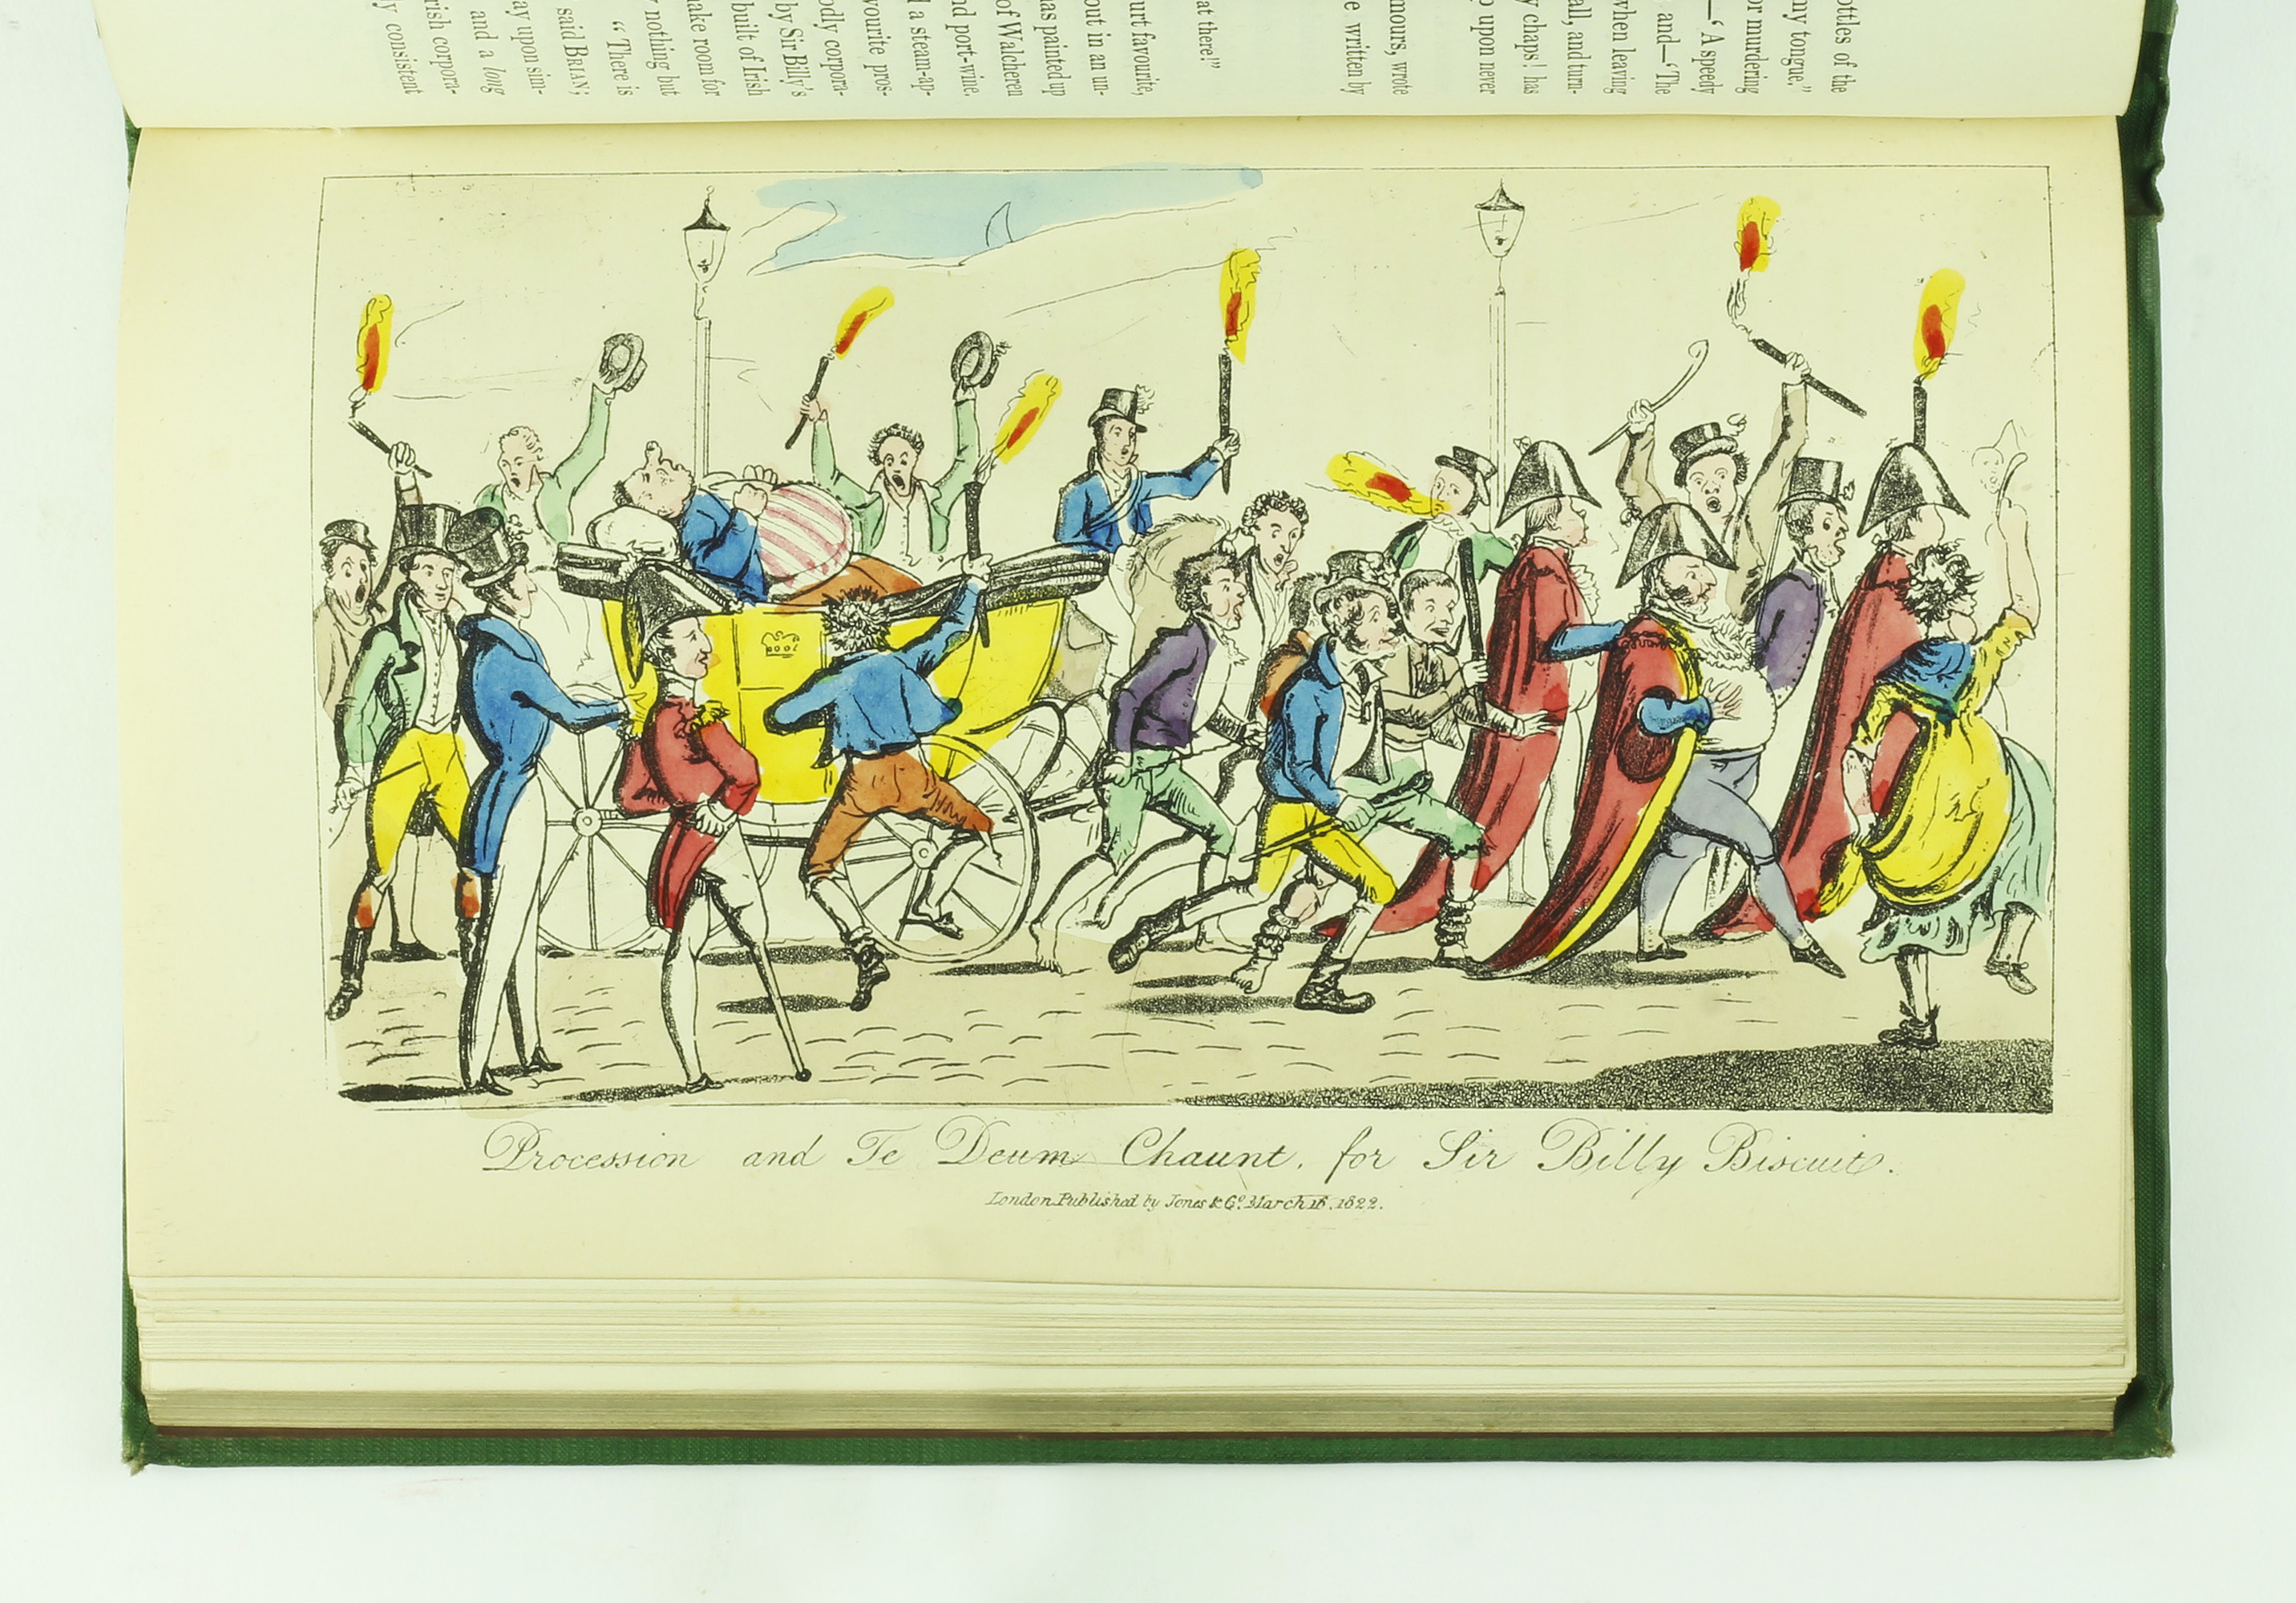 ottles of the
my tongue.”
or murdering
—‘A speedy
and—‘The
when leaving
all, and turn-
y chaps! has
upon never
mours, wrote
e written by
at there!”
urt favourite,
out in an un-
as painted up
of Walcheren
nd port-wine.
d a steam-ap-
vourite pros-
odly corpora-
by Sir Billy's
built of Irish
ake room for
nothing but
“There is
said BRIAN;
ay upon sim-
and a long
rish corpora-
y consistent
Procession and Te Deum Chaunt, for Sir Billy Biscuit.
London Published by Jones & Co. March 16, 1822.